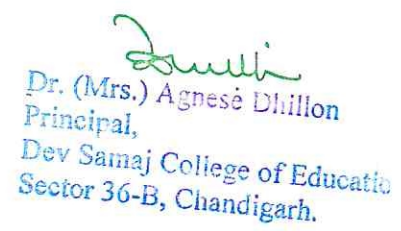 Dr. (Mrs.) Agnese Dhillon
Principal,
Dev Samaj College of Educatio
Sector 36-B, Chandigarh.